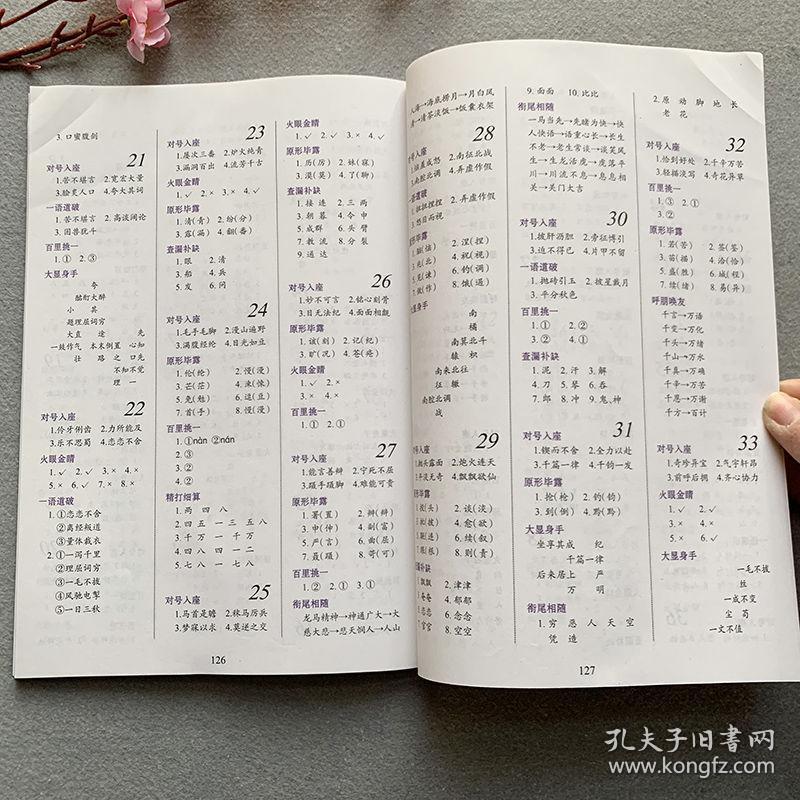 3. 口蜜腹剑
21
对号入座
1.苦不堪言 2.宽宏大量
3.脍炙人口 4.夸大其词
一语道破
1.苦不堪言 2.高谈阔论
3.困兽犹斗
百里挑一
1.①② 2.③
大显身手
夸
酩酊大醉
小 其
题理屈词穷
大直 途 先
一鼓作气 本末倒置 心知
壮 路 之 口先
不知不觉
理 一
22
对号入座
1.伶牙俐齿 2.力所能及
3.乐不思蜀 4.恋恋不舍
火眼金睛
1.✓ 2.✓ 3.× 4.×
5.× 6.✓ 7.× 8.×
一语道破
1.①恋恋不舍
②离经叛道
③量体裁衣
2.①一泻千里
②理屈词穷
③一毛不拔
④风驰电掣
⑤一日三秋
23
对号入座
1.屡次三番 2.炉火纯青
3.漏洞百出 4.流芳千古
火眼金睛
1.✓ 2.× 3.× 4.✓
原形毕露
1.清(青) 2.纷(分)
3.露(漏) 4.翻(番)
查漏补缺
1.眼 2.清
3.船 4.兵
5.发 6.问
24
对号入座
1.毛手毛脚 2.漫山遍野
3.满腹经纶 4.目光如豆
原形毕露
1.伦(纶) 2.慢(漫)
3.芒(茫)
5.免(勉) 6.逗(豆)
7.首(手) 8.慢(漫)
百里挑一
1.①nàn ②nán
2.③
3.②
4.②
精打细算
1.两 四 八
2.四 五 一 三 五 八
3.千 万 一 千 万
4.四 八 四 一 二
5.七 八 一 七 八
25
对号入座
1.马首是瞻 2.秣马厉兵
3.梦寐以求 4.莫逆之交
火眼金睛
1.✓ 2.× 3.× 4.✓
原形毕露
1.历(厉) 2.妹(寐)
3.漠(莫) 4.了(聊)
查漏补缺
1.接 连 2.三 两
3.朝 暮 4.令 申
5.成群 6.头 臂
7.教 流 8.分 裂
9.通 达
26
对号入座
1.妙不可言 2.铭心刻骨
3.目无法纪 4.面面相觑
原形毕露
1.该(刻) 2.记(纪)
3.旷(况) 4.苍(疮)
火眼金睛
1.✓ 2.×
3.× 4.×
百里挑一
1.① 2.①
27
对号入座
1.能言善辩 2.宁死不屈
3.蹑手蹑脚 4.难能可贵
原形毕露
1.署(置) 2.辨(辩)
3.申(伸) 4.副(富)
5.严(言) 6.曲(屈)
7.聂(蹑) 8.苛(可)
百里挑一
1.② 2.① 3.①
衔尾相随
龙马精神→神通广大→大
慈大悲→悲天悯人→人山
126
人海→海底捞月→月白风
清→清茶淡饭→饭囊衣架
28
2.南征北战
南腔北调 4.弄虚作假
2.弄虚作假
怒目而视
2.涅(捏)
4.祝(视)
6.钓(调)
南
橘
南冀北斗
辕 枳
南来北往
征 辙
南腔北调
战
29
2.炮火连天
4.飘飘欲仙
2.谈(淡)
4.愈(欲)
6.续(叙)
8.则(责)
2.津津
4.郁郁
6.念念
8.空空
9.面面 10.比比
衔尾相随
一马当先→先睹为快→快
人快语→语重心长→长生
不老→老生常谈→谈笑风
生→生龙活虎→虎落平
川→川流不息→息息相
关→关门大吉
30
对号入座
1.披肝沥胆 2.旁征博引
3.迫不得已 4.片甲不留
一语道破
1.抛砖引玉 2.披星戴月
3.平分秋色
百里挑一
1.① 2.②
3.① 4.①
查漏补缺
1.泥 2.汗 3.解
4.刀 5.琴 6.吞
7.郎 8.冲 9.鬼、神
31
对号入座
1.锲而不舍 2.全力以赴
3.千篇一律 4.千钧一发
原形毕露
1.抢(枪) 2.钓(钧)
3.到(倒) 4.黔(黔)
大显身手
坐享其成 纪
千篇一律
后来居上 严
万 明
衔尾相随
1.穷 恶 人 天 空
凭 造
2.原 动 脚 地 长
老 花
32
对号入座
1.恰到好处 2.千辛万苦
3.轻描淡写 4.奇花异草
百里挑一
1.③ 2.①
3.②
原形毕露
1.若(苦) 2.签(签)
3.苗(描) 4.洽(恰)
5.盛(胜) 6.城(程)
7.续(绪) 8.易(异)
呼朋唤友
千言→万语
千变→万化
千头→万绪
千山→万水
千真→万确
千辛→万苦
千恩→万谢
千方→百计
33
对号入座
1.奇珍异宝 2.气宇轩昂
3.前呼后拥 4.齐心协力
火眼金睛
1.✓ 2.✓
3.× 4.×
5.× 6.✓
大显身手
一毛不拔
丝
一成不变
尘 苟
一文不值
127
孔夫子旧书网
www.kongfz.com